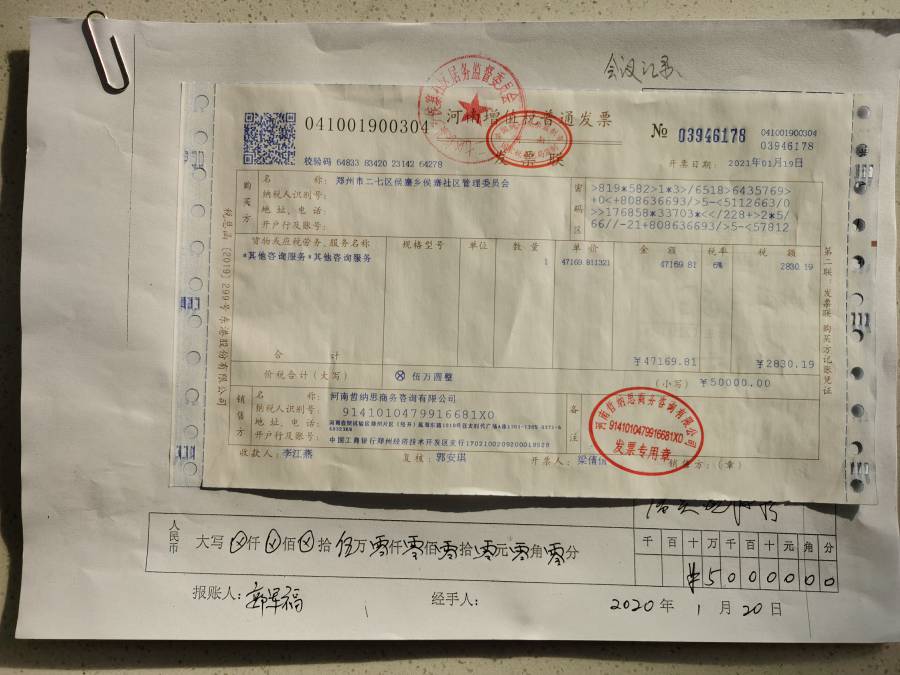 会议记录
河南增值税普通发票
发票联
041001900304
№ 03946178
041001900304
03946178
校验码 64833 83420 23142 64278
开票日期: 2021年01月19日
购买方
名称: 郑州市二七区侯寨乡侯寨社区管理委员会
纳税人识别号:
地址、电话:
开户行及账号:
密码区
>819*582>1*3>/6518>6435769>
+0<+808636693/>5-<5112663/0
>>176858*33703*<</228+>2*5/
66//-21+808636693/>5-<57812
货物或应税劳务、服务名称 规格型号 单位 数量 单价 金额 税率 税额
*其他咨询服务*其他咨询服务 1 47169.811321 47169.81 6% 2830.19
合计 ¥47169.81 ¥2830.19
价税合计(大写) ⊗ 伍万圆整 (小写) ¥50000.00
销售方
名称: 河南哲纳思商务咨询有限公司
纳税人识别号: 9141010479916681X0
地址、电话:
开户行及账号: 中国工商银行郑州经济技术开发区支行1702100209200018528
备注
河南哲纳思商务咨询有限公司
9141010479916681X0
发票专用章
收款人: 李江燕 复核: 郭安琪 开票人: 梁倩倩 销售方:(章)
税总函〔2019〕299号东港股份有限公司
第二联:发票联 购买方记账凭证
人民币 大写 ⊗仟⊗佰⊗拾伍万零仟零佰零拾零元零角零分
千百十万千百十元角分
¥5000000
报账人: 经手人: 2020年1月20日